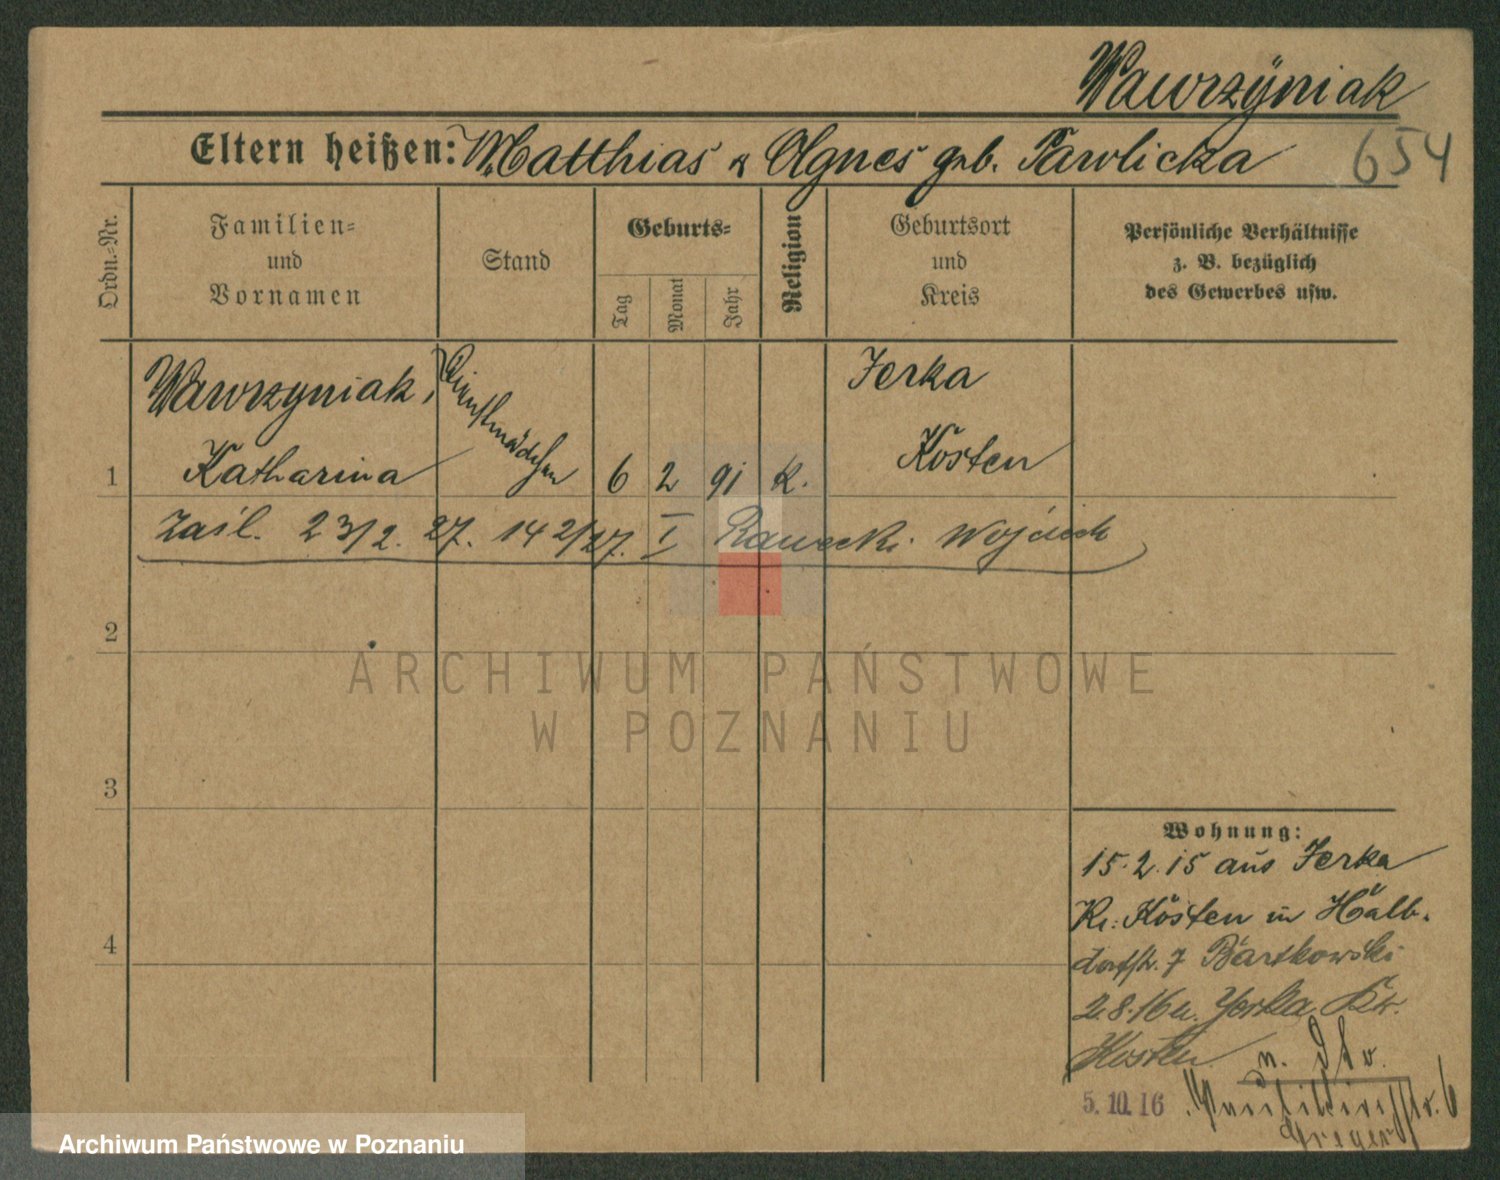 Wawrzÿniak
Eltern heißen: Matthias & Agnes geb. Pawlicka
654
Ordn.=Nr.
Familien=
und
Vornamen
Stand
Geburts=
Tag
Monat
Jahr
Religion
Geburtsort
und
Kreis
Persönliche Verhältnisse
z. B. bezüglich
des Gewerbes usw.
Wawrzyniak,
Katharina
Dienstmädchen
1
6 2 91 K.
Jerka
Kosten
Zaśl. 23/2. 27. 142/27. I Rawecki Wojciech
2
3
4
ARCHIWUM PAŃSTWOWE
W POZNANIU
Wohnung:
15.2.15 aus Jerka
Kr. Kosten in Halb-
dorfstr. 7 Bartkowski
2.8.16 n. Jerka Kr.
Kosten
n. dto.
5.10.16 Paulikirchstr. 6
Archiwum Państwowe w Poznaniu